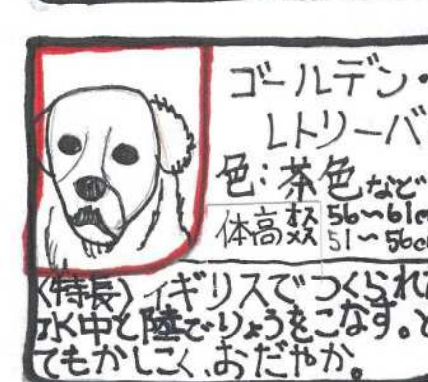 ゴールデン・
レトリーバ
色:茶色など
体高 オス 56〜61c
メス 51〜56c
〈特長〉イギリスでつくられた
水中と陸でりょうをこなす。と
てもかしこく、おだやか。